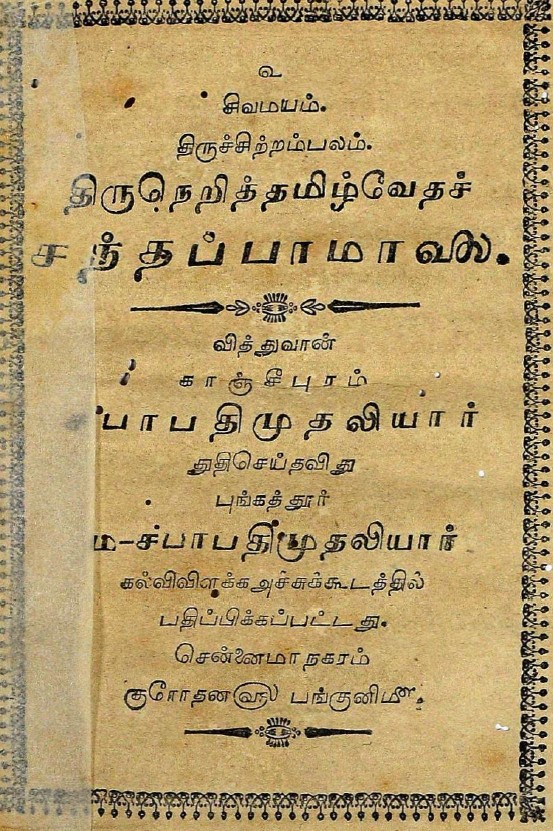 உ
சிவமயம்.
திருச்சிற்றம்பலம்.
திருநெறித்தமிழ்வேதச்
சந்தப்பாமாலை.
வித்துவான்
காஞ்சீபுரம்
சபாபதிமுதலியார்
துதிசெய்தவிது
புங்கத்தூர்
ம-சபாபதிமுதலியார்
கல்விவிளக்கஅச்சுக்கூடத்தில்
பதிப்பிக்கப்பட்டது.
சென்னைமாநகரம்
குரோதன௵ பங்குனி௴.